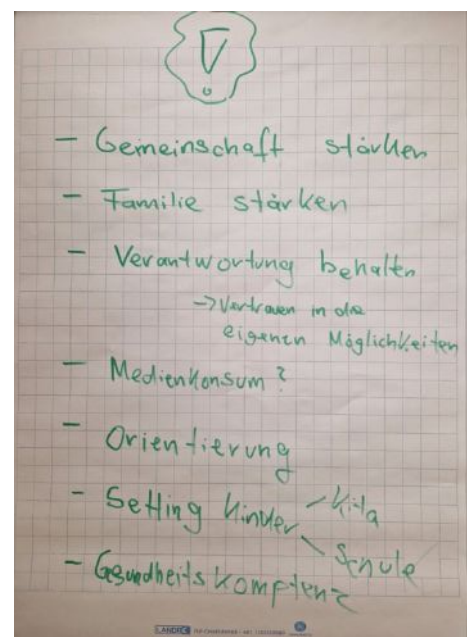 !
- Gemeinschaft stärken
- Familie stärken
- Verantwortung behalten
-> Vertrauen in die
eigenen Möglichkeiten
- Medienkonsum?
- Orientierung
- Setting Kinder - Kita
\ Schule
- Gesundheitskomptenz
LANDRÉ